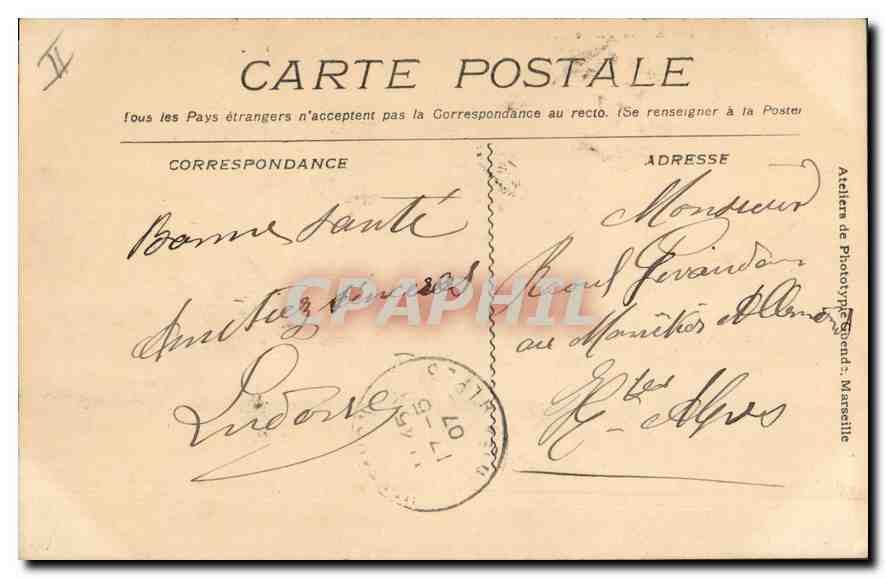 II
CARTE POSTALE
Tous les Pays étrangers n'acceptent pas la Correspondance au recto. (Se renseigner à la Poste)
CORRESPONDANCE
Bonne santé
Amitiez sincères
Ludovic
ADRESSE
Monsieur
Raoul
au
Htes Alpes
17-5
07
PAPHIL
Ateliers de Phototypie Guende, Marseille